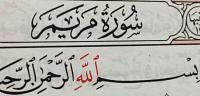 سُورَةُ مَرْيَمَ
بِسْمِ اللَّهِ الرَّحْمَٰنِ الرَّحِ